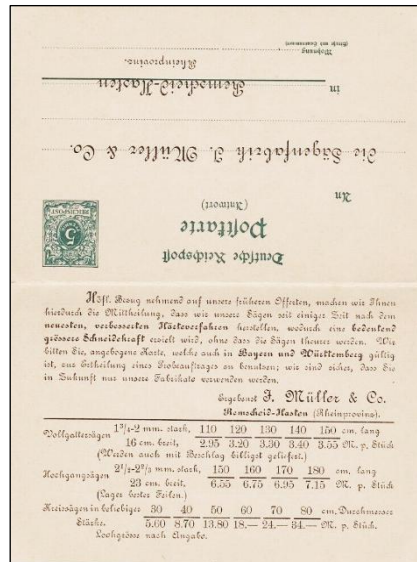 Deutsche Reichspost
Postkarte
(Antwort)
REICHSPOST
5
An
die Sägenfabrik J. Müller & Co.
in
Remscheid-Hasten
Rheinprovinz.
Wohnung
(Straße und Hausnummer)
Höfl. Bezug nehmend auf unsere früheren Offerten, machen wir Ihnen
hierdurch die Mittheilung, dass wir unsere Sägen seit einiger Zeit nach dem
neuesten, verbesserten Härteverfahren herstellen, wodurch eine bedeutend
grössere Schneidekraft erzielt wird, ohne dass die Sägen theurer werden. Wir
bitten Sie, angebogene Karte, welche auch in Bayern und Württemberg gültig
ist, zur Ertheilung eines Probeauftrages zu benutzen; wir sind sicher, dass Sie
in Zukunft nur unsere Fabrikate verwenden werden.
Ergebenst J. Müller & Co.
Remscheid-Hasten (Rheinprovinz).
Vollgattersägen 1³/₄-2 mm. stark, 110 120 130 140 150 cm. lang
16 cm. breit, 2.95 3.20 3.30 3.40 3.55 M. p. Stück
(Werden auch mit Beschlag billigst geliefert.)
Hochgangsägen 2¹/₂-2²/₃ mm. stark, 150 160 170 180 cm. lang
23 cm. breit, 6.55 6.75 6.95 7.15 M. p. Stück
(Lager bester Feilen.)
Kreissägen in beliebiger 30 40 50 60 70 80 cm. Durchmesser
Stärke. 5.60 8.70 13.80 18.— 24.— 34.— M. p. Stück.
Lochgrösse nach Angabe.